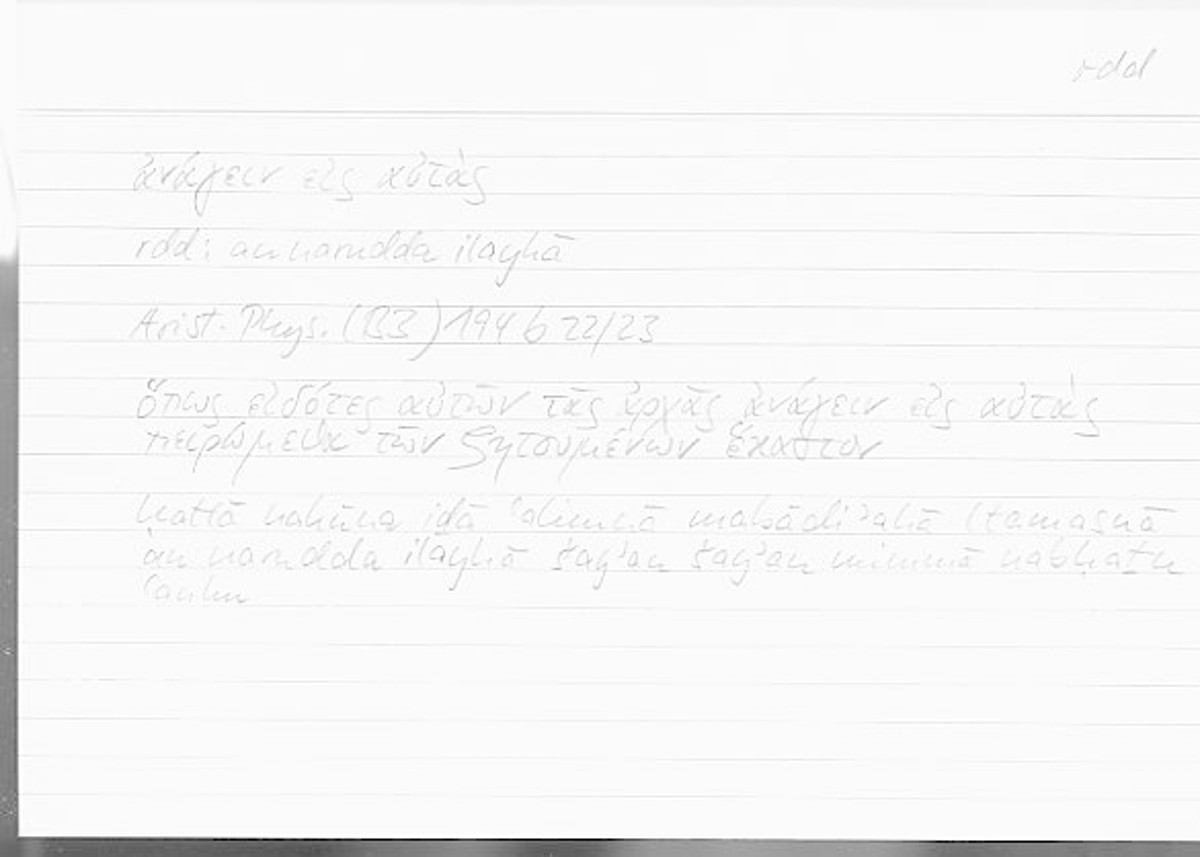 rdd
ἀνάγειν εἰς αὐτάς
rdd: an narudda ilayhā
Arist. Phys. (B3) 194 b 22/23
ὅπως εἰδότες αὐτῶν τὰς ἀρχὰς ἀνάγειν εἰς αὐτὰς
πειρώμεθα τῶν ζητουμένων ἕκαστον
ḥattā nakūna iḏā ʿalimnā mabādiʾahā ltamasnā
an narudda ilayhā šayʾan šayʾan mimmā nabḥaṯu
ʿanhu